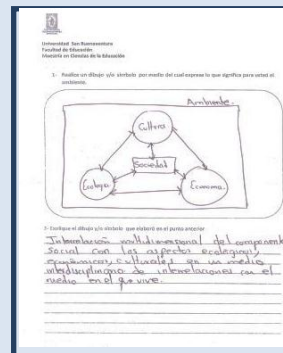 Universidad San Buenaventura
Facultad de Educación
Maestría en Ciencias de la Educación
1- Realice un dibujo y/o símbolo por medio del cual exprese lo que significa para usted el
ambiente.
Ambiente.
Cultura
Sociedad
Ecología
Economía.
2- Explique el dibujo y/o símbolo que elaboró en el punto anterior
Interrelación multidimensional del componente
social con los aspectos ecológicos,
económicos, culturales en un medio
interdisciplinario de interrelaciones con el
medio en el que vive.